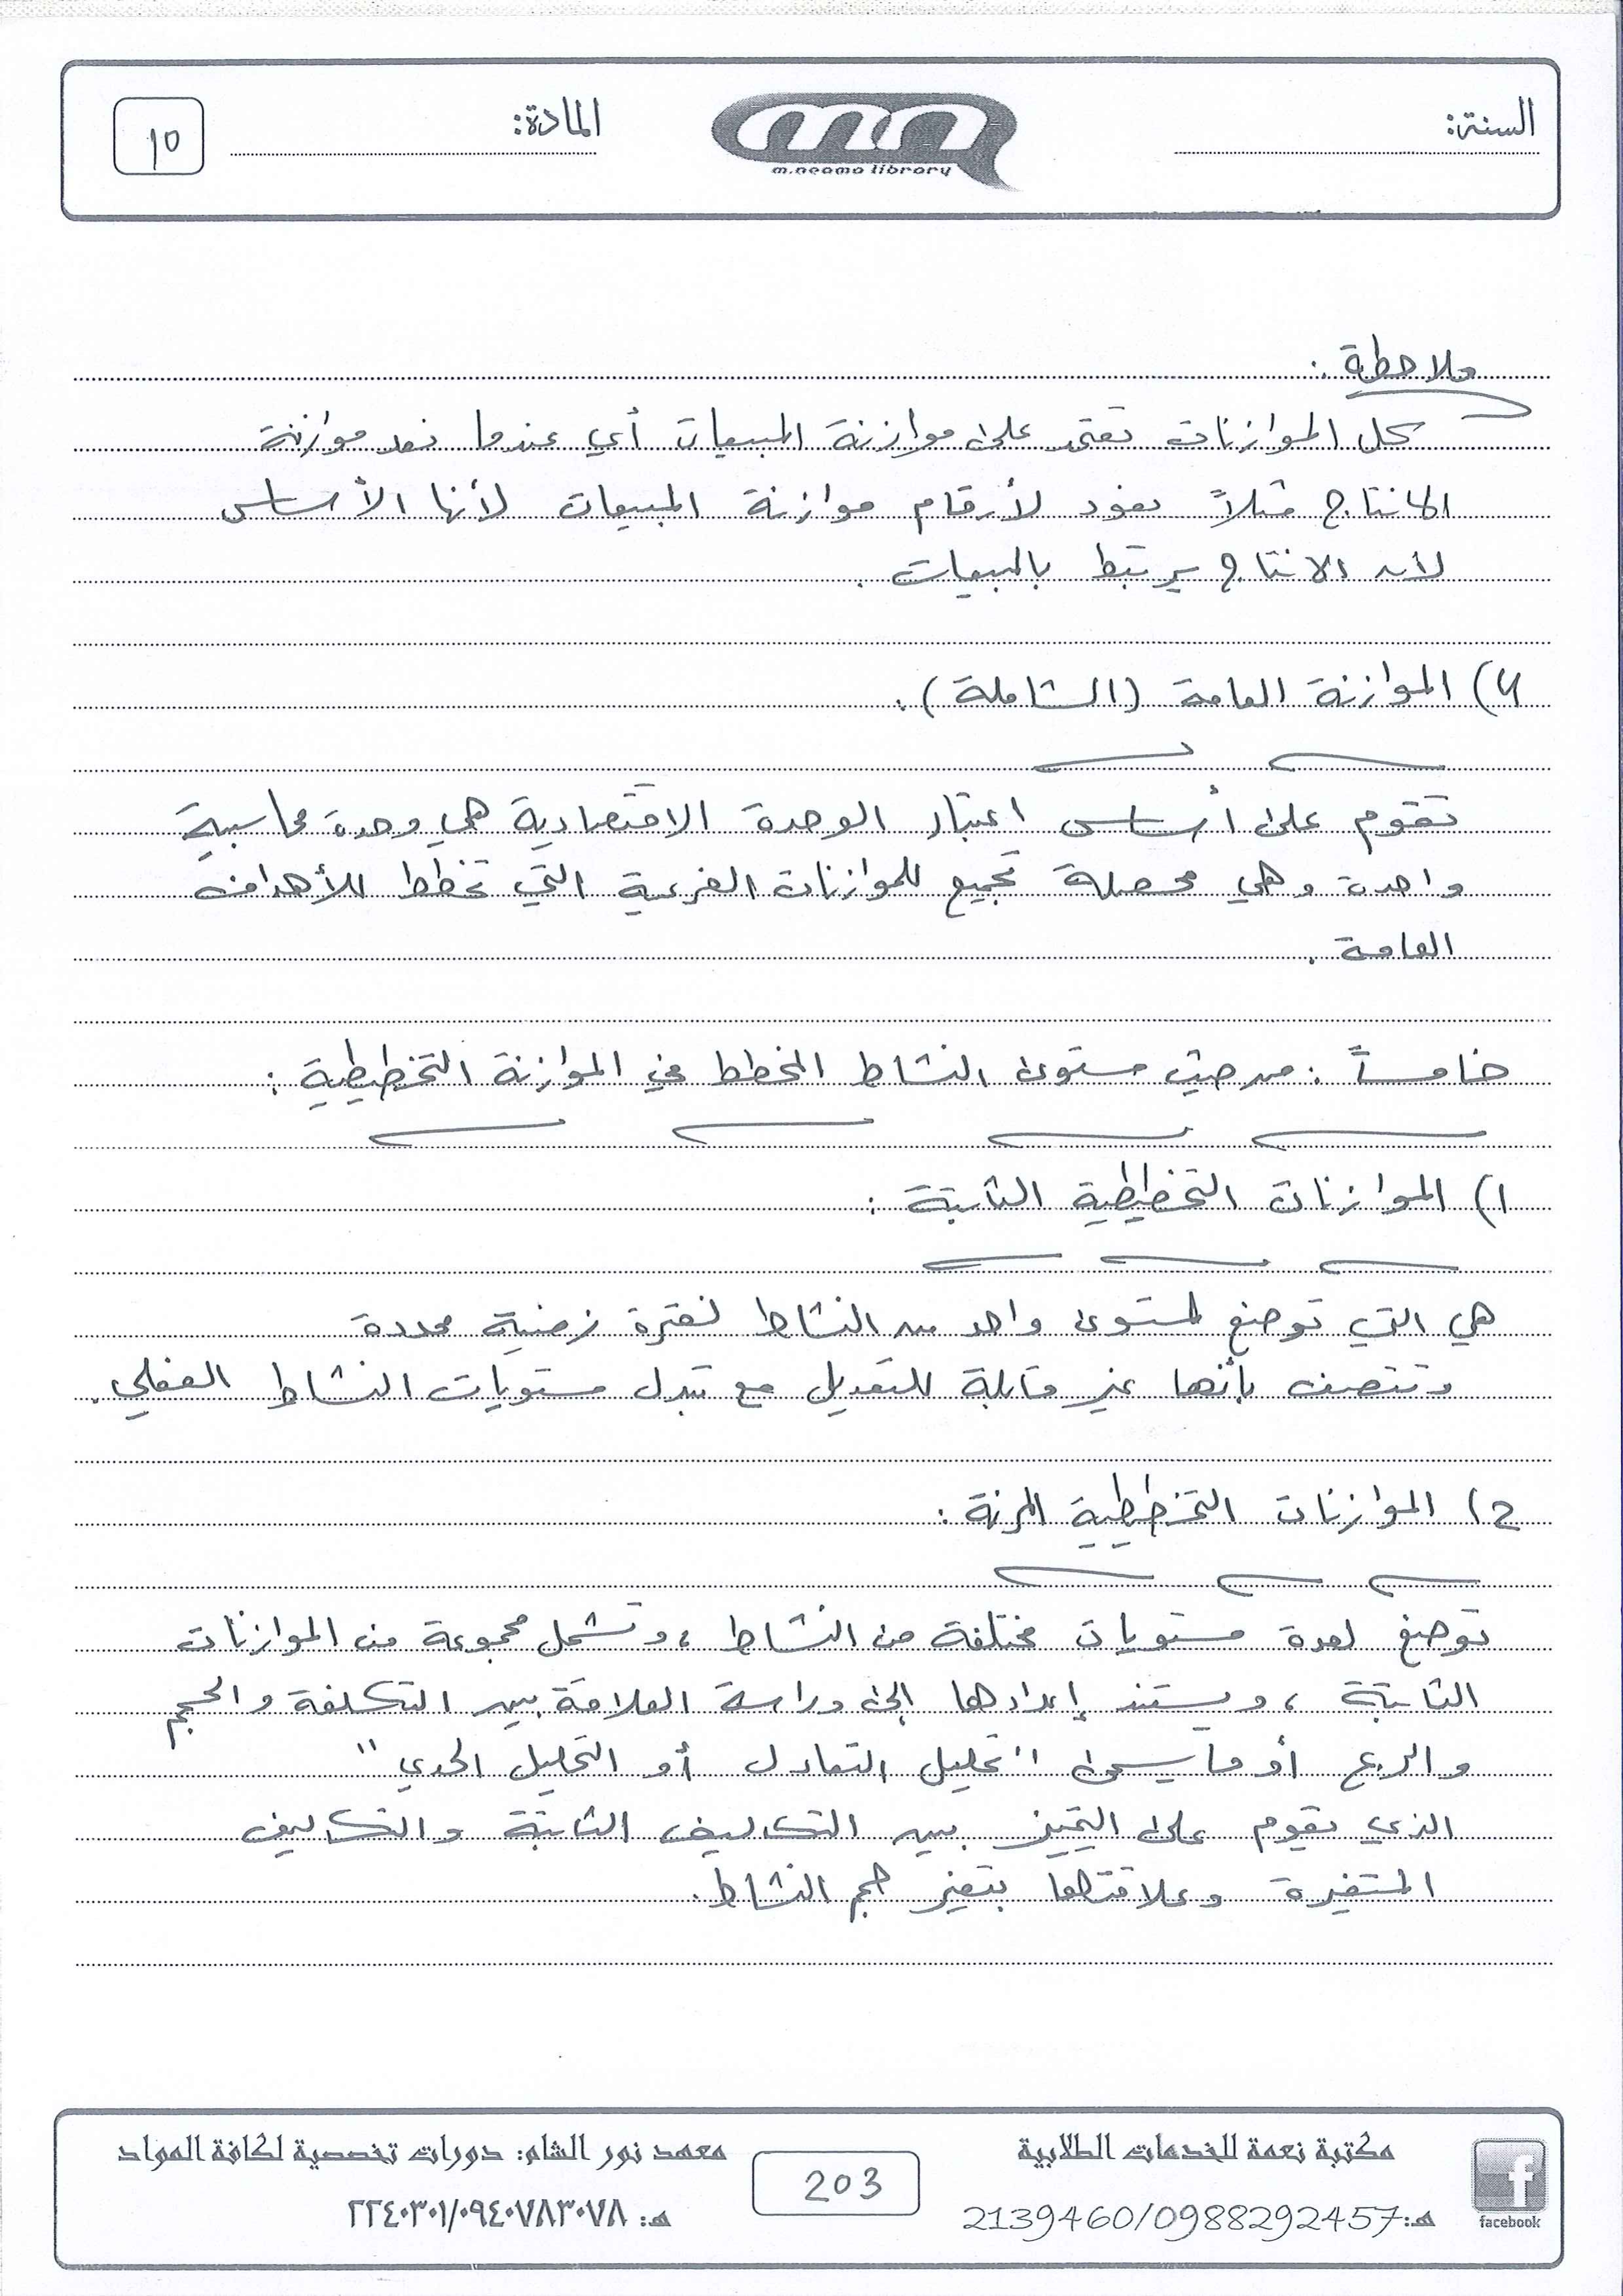 السنة:
m.neama library
المادة:
١٥
ملاحظة :
كل الموازنات تعتمد على موازنة المبيعات أي عندما نعد موازنة
الانتاج مثلاً نعود لأرقام موازنة المبيعات لأنها الأساس
لأن الانتاج يرتبط بالمبيعات .
4) الموازنة العامة (الشاملة) .
تقوم على أساس اعتبار الوحدة الاقتصادية هي وحدة محاسبية
واحدة وهي محصلة تجميع للموازنات الفرعية التي تخطط للأهداف
العامة .
خامساً : من حيث مستوى النشاط المخطط في الموازنة التخطيطية :
1) الموازنات التخطيطية الثابتة :
هي التي توضع لمستوى واحد من النشاط لفترة زمنية محددة
وتتصف بأنها غير قابلة للتعديل مع تبدل مستويات النشاط الفعلي .
2) الموازنات التخطيطية المرنة :
توضع لعدة مستويات مختلفة من النشاط ، وتشمل مجموعة من الموازنات
الثابتة ، ويستند إعدادها إلى دراسة العلاقة بين التكلفة والحجم
والربح أو ما يسمى " تحليل التعادل أو التحليل الحدي "
الذي يقوم على التمييز بين التكاليف الثابتة والتكاليف
المتغيرة وعلاقتها بتغير حجم النشاط .
facebook
مكتبة نعمة للخدمات الطلابية
هـ: 2139460/0988292457
203
معهد نور الشام: دورات تخصصية لكافة المواد
هـ: ٢٢٤٠٣٠١/٠٩٤٠٧٨٣٠٧٨